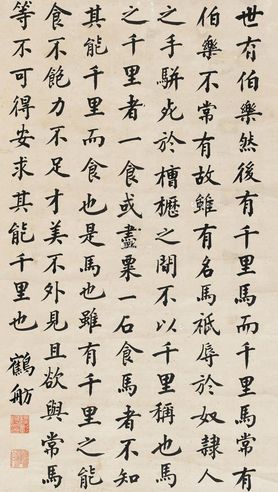 世有伯樂然後有千里馬而千里馬常有
伯樂不常有故雖有名馬祗辱於奴隸人
之手駢死於槽櫪之間不以千里稱也馬
之千里者一食或盡粟一石食馬者不知
其能千里而食也是馬也雖有千里之能
食不飽力不足才美不外見且欲與常馬
等不可得安求其能千里也 鶴舫